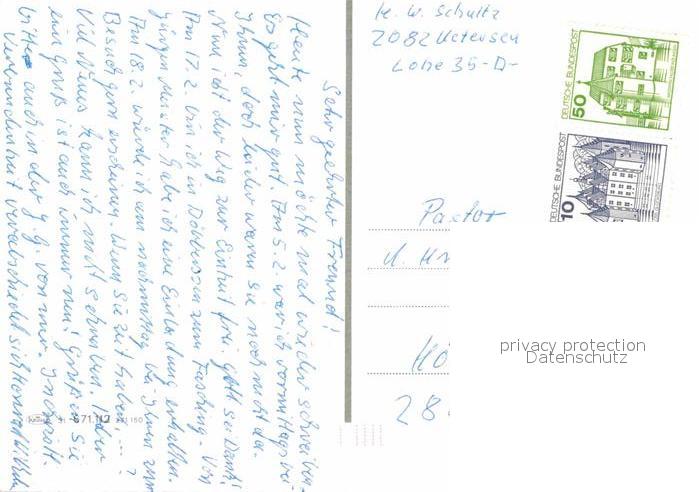 Sehr geehrter Freund!
Heute nun möchte mal wieder schreiben.
Es geht mir gut. Am 5.2. war ich vorm Hause bei
Ihnen, doch leider waren Sie noch nicht da.
Nun ist der Weg zur frei. gott sei Dank!
Am 17.2. bin ich in zum Fasching. Von
Meister habe ich eine Einladung erhalten.
Am 18.2. würde ich am nachmittag bei Ihnen zum
Besuch gern erscheinen. Wenn Sie zeit haben, --- ?
Viel Neues kann ich nicht schreiben. Jeder
ein Gruß ist auch immer neu! Grüßen Sie
bitte auch in der J.G. von mir.
Verbundenheit verabschiedet sich
671.112
H. W. Schultz
2082 Uetersen
Lohe 35-D-
DEUTSCHE BUNDESPOST
50
DEUTSCHE BUNDESPOST
10
Pastor
privacy protection
Datenschutz
28